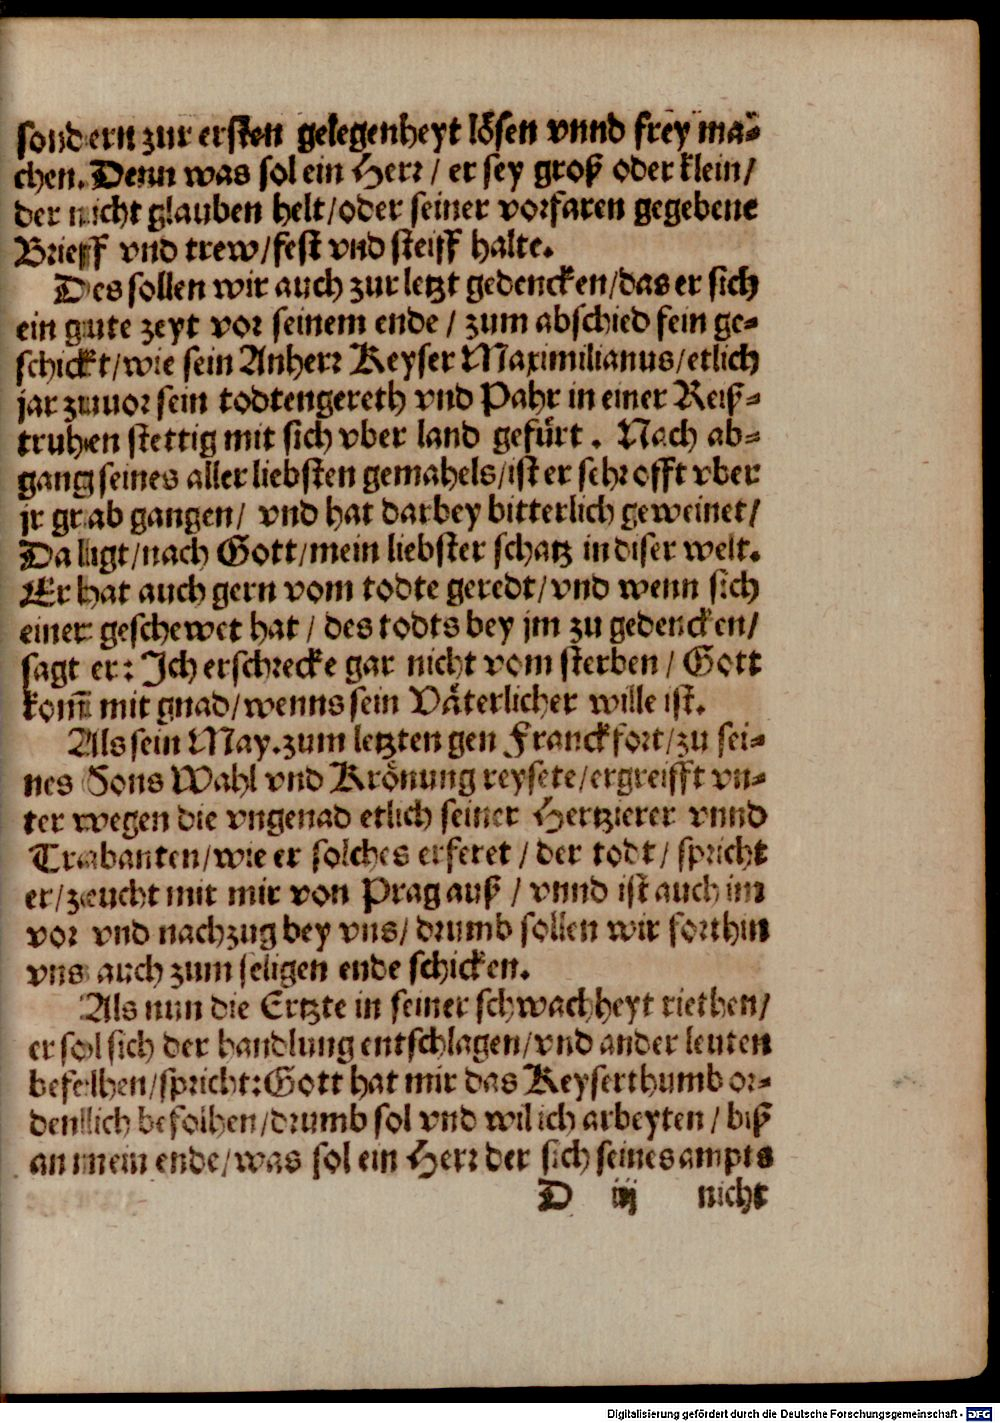 sondern zur ersten gelegenheyt lösen vnnd frey ma-
chen. Denn was sol ein Herr / er sey groß oder klein/
der nicht glauben helt/oder seiner vorfaren gegebene
Brieff vnd trew/fest vnd steiff halte.
Des sollen wir auch zur letzt gedencken/das er sich
ein gute zeyt vor seinem ende / zum abschied fein ge-
schickt/wie sein Anherr Keyser Maximilianus/etlich
jar zuuor sein todtengereth vnd Pahr in einer Reiß-
truhen stettig mit sich vber land gefürt . Nach ab-
gang seines aller liebsten gemahels/ist er sehr offt vber
jr grab gangen/ vnd hat darbey bitterlich geweinet/
Da ligt/nach Gott/mein liebster schatz in diser welt.
Er hat auch gern vom todte geredt/vnd wenn sich
einer geschewet hat / des todts bey jm zu gedencken/
sagt er: Ich erschrecke gar nicht vom sterben / Gott
kom̃ mit gnad/wenns sein Väterlicher wille ist.
Als sein May.zum letzten gen Franckfort/zu sei-
nes Sons Wahl vnd Krönung reysete/ergreifft vn-
ter wegen die vngenad etlich seiner Hertzierer vnnd
Trabanten/wie er solches erferet / der todt / spricht
er/zeucht mit mir von Prag auß / vnnd ist auch im
vor vnd nachzug bey vns/ drumb sollen wir forthin
vns auch zum seligen ende schicken.
Als nun die Ertzte in seiner schwachheyt riethen/
er sol sich der handlung entschlagen/vnd ander leuten
befelhen/spricht:Gott hat mir das Keyserthumb or-
denlich befolhen/drumb sol vnd wil ich arbeyten / biß
an mein ende/was sol ein Herr der sich seines ampts
D iij nicht
Digitalisierung gefördert durch die Deutsche Forschungsgemeinschaft - DFG